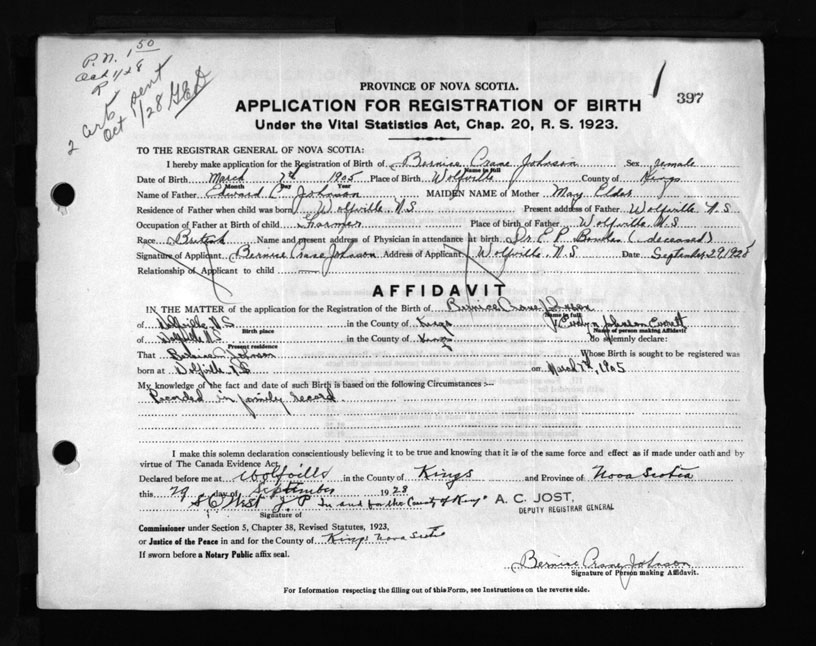 P.N. 1 50
Oct 1/28
2 cert sent
Oct 1/28 GED
397
PROVINCE OF NOVA SCOTIA.
APPLICATION FOR REGISTRATION OF BIRTH
Under the Vital Statistics Act, Chap. 20, R. S. 1923.
TO THE REGISTRAR GENERAL OF NOVA SCOTIA:
I hereby make application for the Registration of Birth of Bernice Crane Johnson Sex female
Name in full
Date of Birth March 7th 1905 Place of Birth Wolfville County of Kings
Month Day Year
Name of Father Edward C. Johnson MAIDEN NAME of Mother May Elder
Residence of Father when child was born Wolfville N.S Present address of Father Wolfville N.S
Occupation of Father at Birth of child Farmer Place of birth of Father Wolfville N.S
Race British Name and present address of Physician in attendance at birth Dr E P (deceased)
Signature of Applicant Bernice Crane Johnson Address of Applicant Wolfville N.S Date September 29 1928
Relationship of Applicant to child
AFFIDAVIT
IN THE MATTER of the application for the Registration of the Birth of Bernice Crane Johnson
Name in full
of Wolfville N.S in the County of Kings I, Evelyn Johnson Everett
Birth place Name of person making Affidavit
of Wolfville N.S in the County of Kings do solemnly declare:
Present residence
That Bernice Johnson Whose Birth is sought to be registered was
born at Wolfville N.S on March 7th, 1905
My knowledge of the fact and date of such Birth is based on the following Circumstances :—
Recorded in family record.
I make this solemn declaration conscientiously believing it to be true and knowing that it is of the same force and effect as if made under oath and by
virtue of The Canada Evidence Act.
Declared before me at Wolfville in the County of Kings and Province of Nova Scotia
this 29 day of September 1928
J. P. In and for the County of Kings A. C. JOST,
DEPUTY REGISTRAR GENERAL
Signature of
Commissioner under Section 5, Chapter 38, Revised Statutes, 1923,
or Justice of the Peace in and for the County of Kings Nova Scotia
If sworn before a Notary Public affix seal.
Bernice Crane Johnson
Signature of Person making Affidavit.
For Information respecting the filling out of this Form, see Instructions on the reverse side.